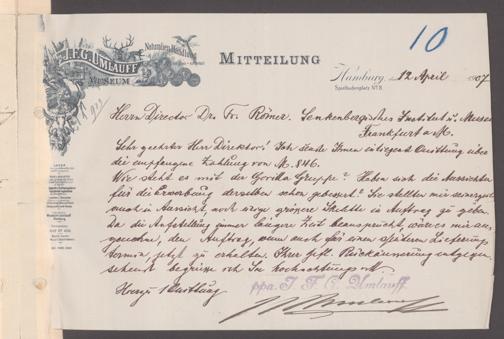 10
J.F.G. UMLAUFF
MUSEUM
Naturalien-Handlung
MITTEILUNG
Hamburg, 12 April 1907
Spielbudenplatz No 8
Herrn Director Dr. Fr. Römer. Senkenbergisches Institut u. Museum
Frankfurt a M.
Sehr geehrter Herr Direktor! Ich sende Ihnen einliegend Quittung über
die empfangene Zahlung von M. 846.
Wie steht es mit der Gorilla Gruppe? Haben sich die Aussichten
für die Erwerbung derselben schon gebessert? Sie stellten mir seinerzeit
auch in Aussicht noch einige grössere Skelette in Auftrag zu geben.
Da die Aufstellung immer längere Zeit beansprucht, wäre es mir an-
genehm, den Auftrag, wenn auch für einen späteren Lieferungs
termin jetzt zu erhalten. Ihrer gefl. Rückäusserung entgegen-
sehend begrüsse ich Sie hochachtungsvoll
Hierzu 1 Quittung
ppa. J. F. G. Umlauff